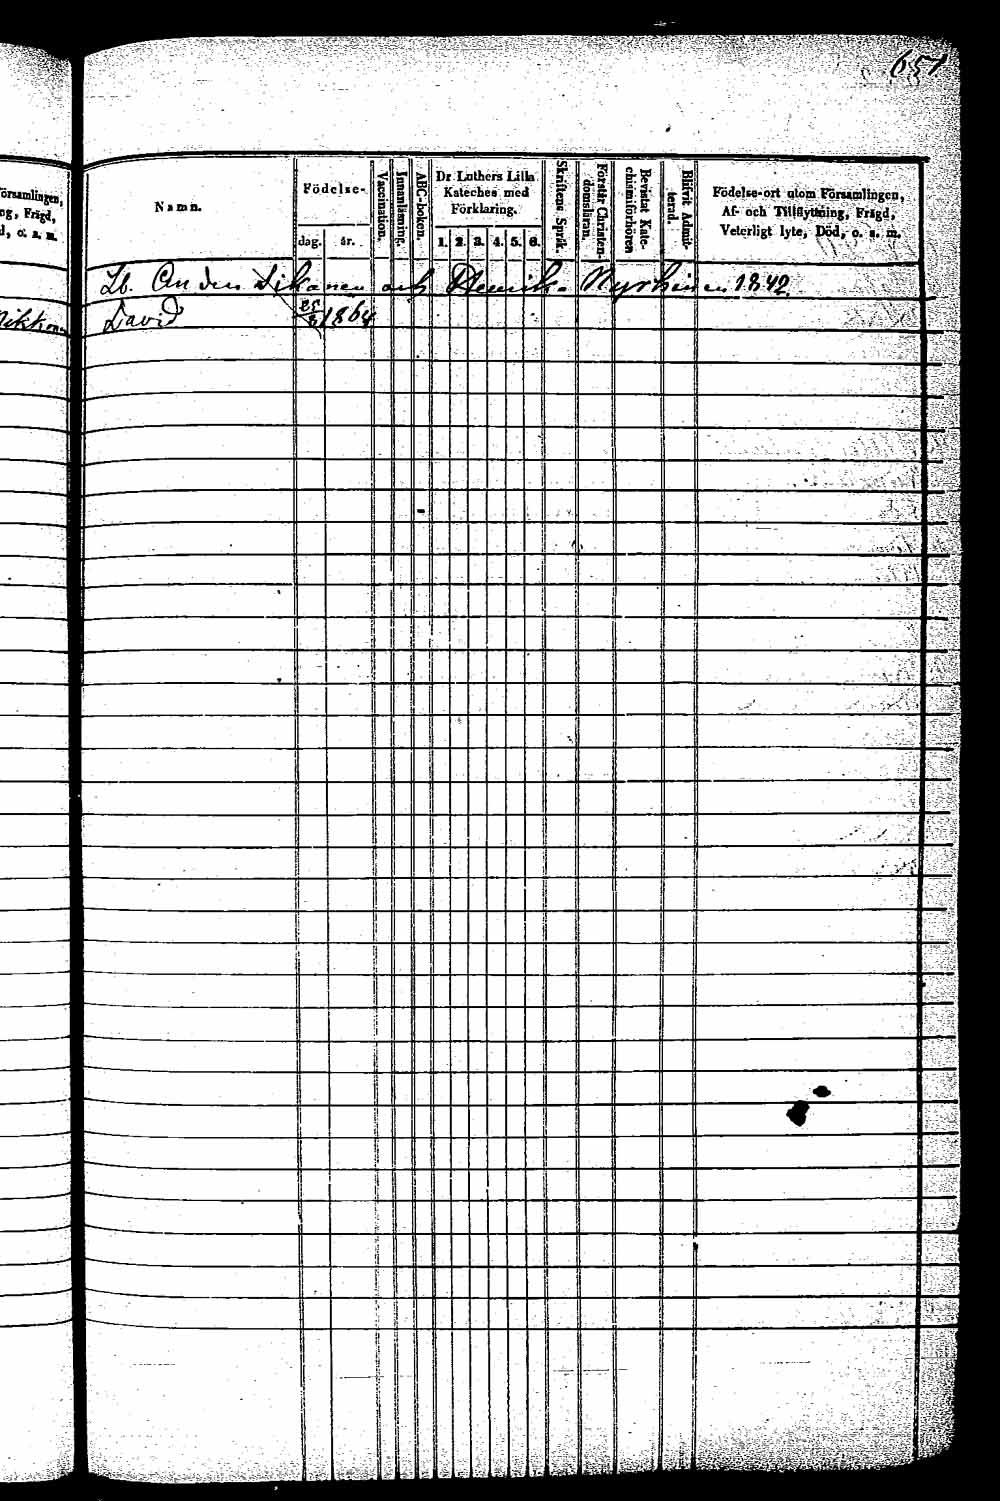 651
örsamlingen,
ng, Frägd,
d, o. s. m.
Namn.
Födelse-
dag. år.
Vaccination.
Innanläsning.
ABC-boken.
Dr Luthers Lilla
Kateches med
Förklaring.
1. 2. 3. 4. 5. 6.
Skriftens Språk.
Förstår Christen-
domsläran.
Bevistat Kate-
chismiförhören
Blifvit Admit-
terad.
Födelse-ort utom Församlingen,
Af- och Tillflyttning, Frägd,
Veterligt lyte, Död, o. s. m.
Lb. Anders Likonen och Henrik Nyrhinen 1842.
David 1864